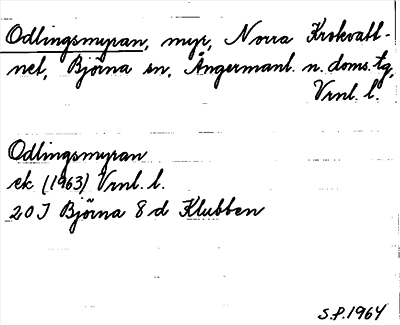 Odlingsmyran, myr, Norra Krokvatt-
net, Björna sn, Ångermanl. n. doms. tg,
Vrnl. l.
Odlingsmyran
ek (1963) Vrnl. l.
20 J Björna 8 d Klubben
S.P. 1964